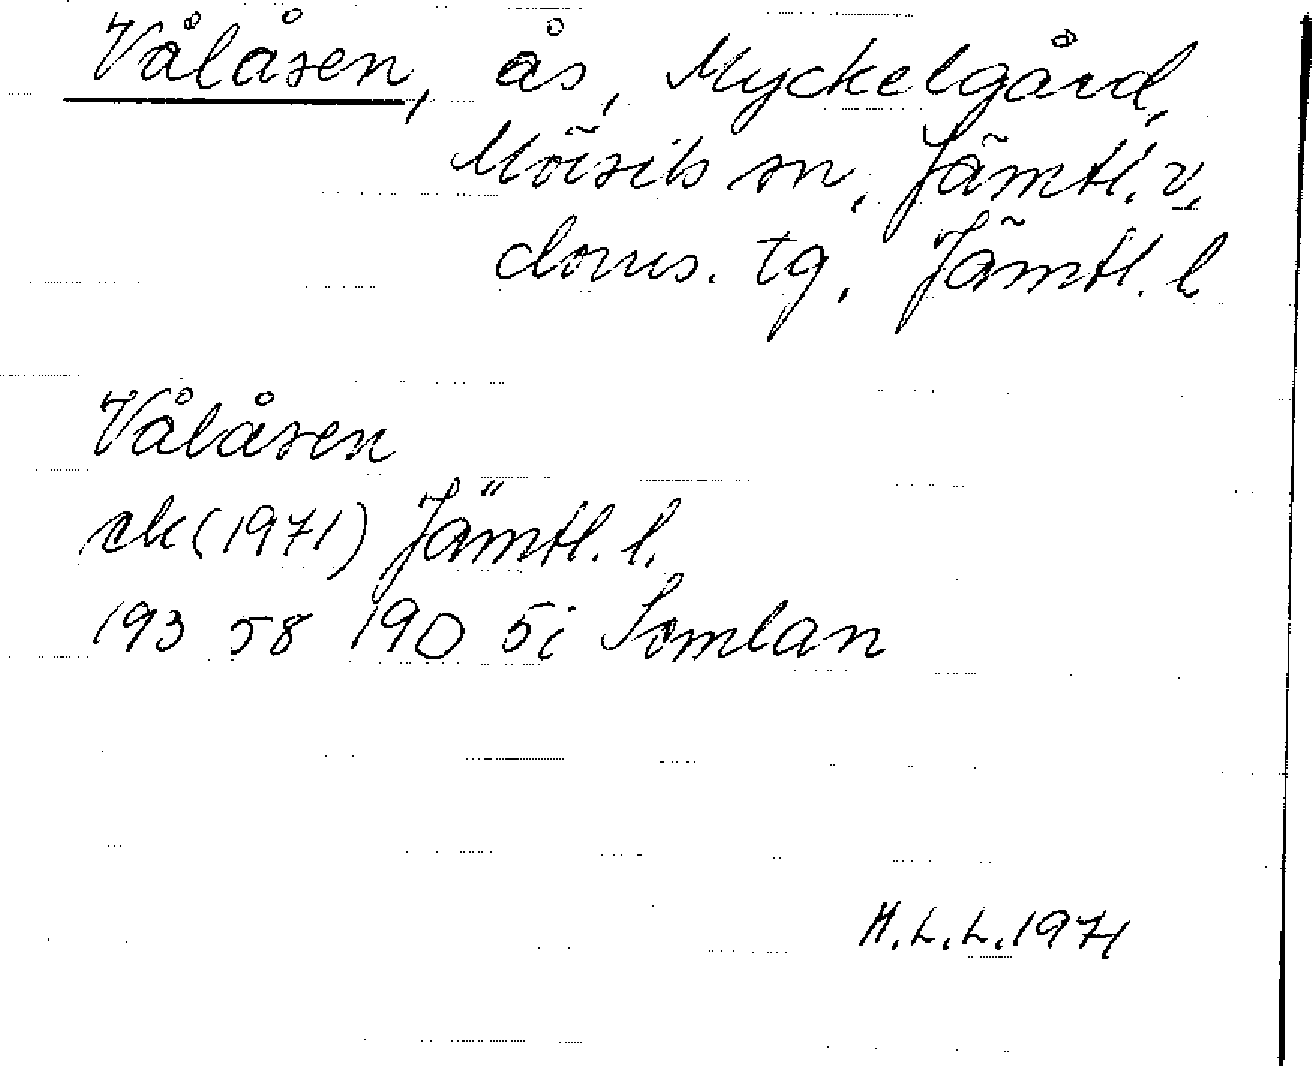 Vålåsen, ås, Myckelgård,
Mörsils sn, Jämtl. v.
doms. tg, Jämtl. l
Vålåsen
ek (1971) Jämtl. l.
193 58 19D 5i Semlan
H.L.L. 1971